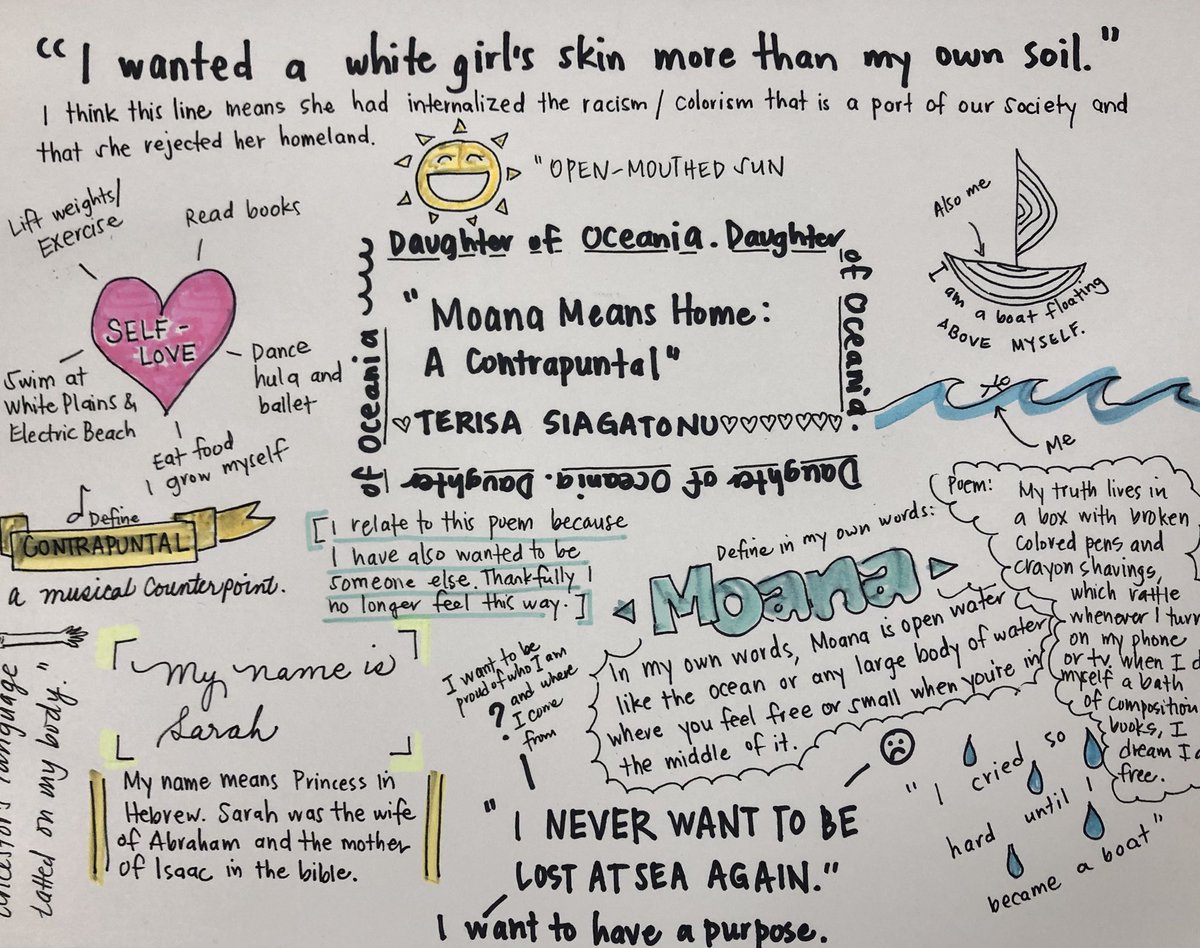 "I wanted a white girl's skin more than my own soil."
I think this line means she had internalized the racism / colorism that is a part of our society and
that she rejected her homeland.
"OPEN-MOUTHED SUN
Lift weights/
Exercise
Read books
SELF-
LOVE
Dance
hula and
ballet
Swim at
White Plains &
Electric Beach
Eat food
I grow myself
Daughter of Oceania. Daughter
of Oceania.
Daughter of Oceania. Daughter
of Oceania
"Moana Means Home:
A Contrapuntal"
TERISA SIAGATONU
Also me
I am a boat floating
ABOVE MYSELF.
Me
Define
CONTRAPUNTAL
a musical counterpoint.
[I relate to this poem because
I have also wanted to be
someone else. Thankfully I
no longer feel this way.]
Define in my own words:
Moana
In my own words, Moana is open water
like the ocean or any large body of water
where you feel free or small when you're in
the middle of it.
Poem:
My truth lives in
a box with broken
colored pens and
crayon shavings,
which rattle
whenever I turn
on my phone
or tv. When I d
myself a bath
of composition
books, I
dream I a
free.
language
tatted on my body."
My name is
Sarah
My name means Princess in
Hebrew. Sarah was the wife
of Abraham and the mother
of Isaac in the bible.
I want to be
proud of who I am
and where
I come
from
?
"I NEVER WANT TO BE
LOST AT SEA AGAIN."
I want to have a purpose.
"I cried so
hard until I
became a boat"